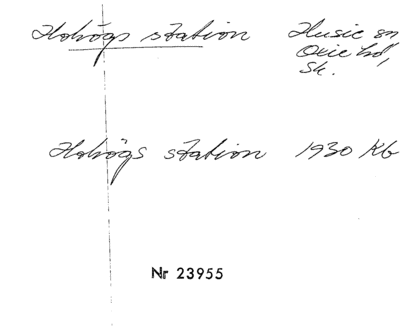 Hohögs station Husie sn
Oxie hd,
Sk.
Hohögs station 1930 Kb
Nr 23955